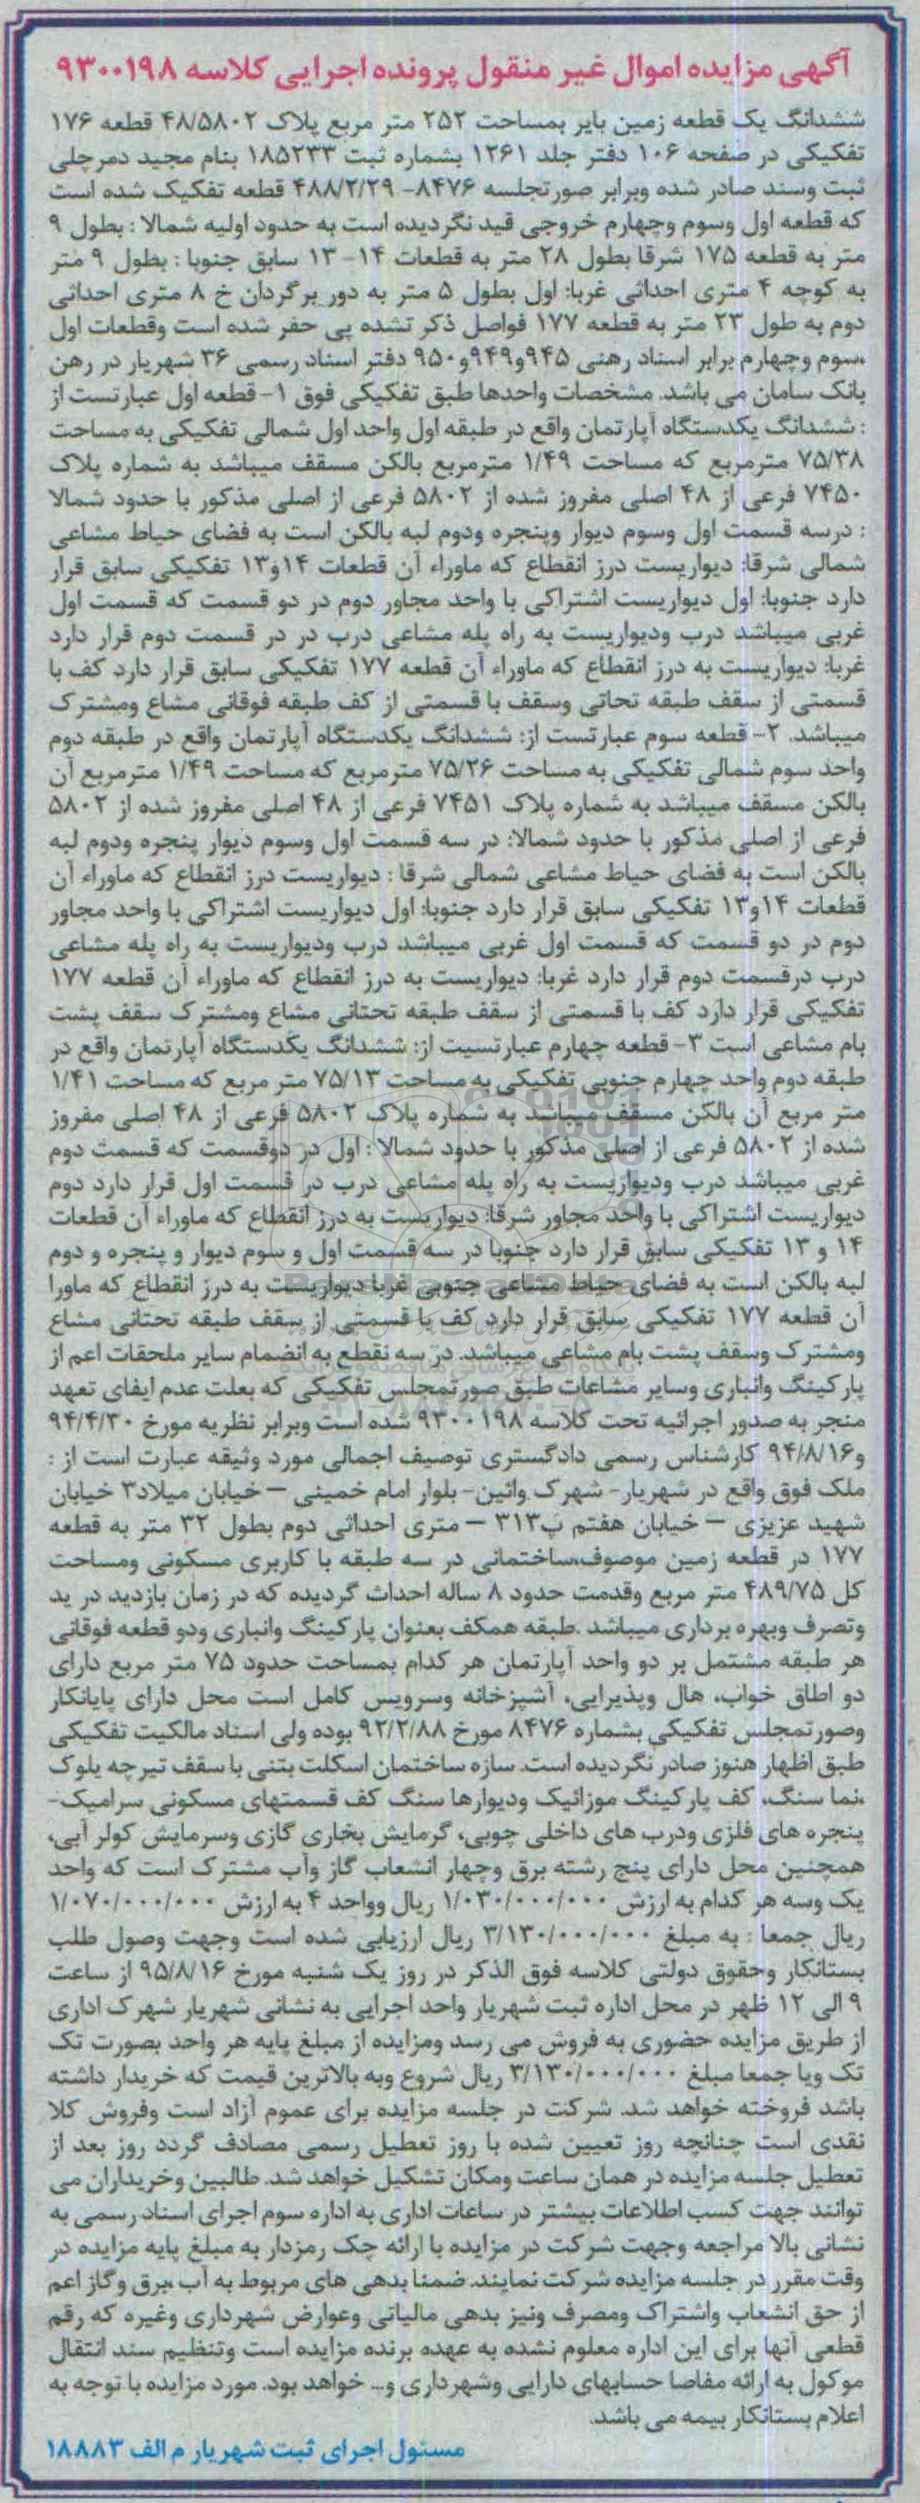 آگهی مزایده اموال غیر منقول پرونده اجرایی کلاسه ۹۳۰۰۱۹۸
ششدانگ یک قطعه زمین بایر بمساحت ۲۵۲ متر مربع پلاک ۴۸/۵۸۰۲ قطعه ۱۷۶
تفکیکی در صفحه ۱۰۶ دفتر جلد ۱۲۶۱ بشماره ثبت ۱۸۵۲۳۳ بنام مجید دمرچلی
ثبت وسند صادر شده وبرابر صورتجلسه ۸۴۷۶- ۴۸۸/۲/۲۹ قطعه تفکیک شده است
که قطعه اول وسوم وچهارم خروجی قید نگردیده است به حدود اولیه شمالا : بطول ۹
متر به قطعه ۱۷۵ شرقا بطول ۲۸ متر به قطعات ۱۴- ۱۳ سابق جنوبا : بطول ۹ متر
به کوچه ۴ متری احداثی غربا: اول بطول ۵ متر به دور برگردان خ ۸ متری احداثی
دوم به طول ۲۳ متر به قطعه ۱۷۷ فواصل ذکر نشده پی حفر شده است وقطعات اول
،سوم وچهارم برابر اسناد رهنی ۹۴۵و۹۴۹و۹۵۰ دفتر اسناد رسمی ۳۶ شهریار در رهن
بانک سامان می باشد. مشخصات واحدها طبق تفکیکی فوق ۱- قطعه اول عبارتست از
: ششدانگ یکدستگاه آپارتمان واقع در طبقه اول واحد اول شمالی تفکیکی به مساحت
۷۵/۳۸ مترمربع که مساحت ۱/۴۹ مترمربع بالکن مسقف میباشد به شماره پلاک
۷۴۵۰ فرعی از ۴۸ اصلی مفروز شده از ۵۸۰۲ فرعی از اصلی مذکور با حدود شمالا
: درسه قسمت اول وسوم دیوار وپنجره ودوم لبه بالکن است به فضای حیاط مشاعی
شمالی شرقا: دیواریست درز انقطاع که ماوراء آن قطعات ۱۴و۱۳ تفکیکی سابق قرار
دارد جنوبا: اول دیواریست اشتراکی با واحد مجاور دوم در دو قسمت که قسمت اول
غربی میباشد درب ودیواریست به راه پله مشاعی درب در در قسمت دوم قرار دارد
غربا: دیواریست به درز انقطاع که ماوراء آن قطعه ۱۷۷ تفکیکی سابق قرار دارد کف با
قسمتی از سقف طبقه تحاتی وسقف با قسمتی از کف طبقه فوقانی مشاع ومشترک
میباشد. ۲- قطعه سوم عبارتست از: ششدانگ یکدستگاه آپارتمان واقع در طبقه دوم
واحد سوم شمالی تفکیکی به مساحت ۷۵/۲۶ مترمربع که مساحت ۱/۴۹ مترمربع آن
بالکن مسقف میباشد به شماره پلاک ۷۴۵۱ فرعی از ۴۸ اصلی مفروز شده از ۵۸۰۲
فرعی از اصلی مذکور با حدود شمالا: در سه قسمت اول وسوم دیوار پنجره ودوم لبه
بالکن است به فضای حیاط مشاعی شمالی شرقا : دیواریست درز انقطاع که ماوراء آن
قطعات ۱۴و۱۳ تفکیکی سابق قرار دارد جنوبا: اول دیواریست اشتراکی با واحد مجاور
دوم در دو قسمت که قسمت اول غربی میباشد درب ودیواریست به راه پله مشاعی
درب درقسمت دوم قرار دارد غربا: دیواریست به درز انقطاع که ماوراء آن قطعه ۱۷۷
تفکیکی قرار دارد کف با قسمتی از سقف طبقه تحتانی مشاع ومشترک سقف پشت
بام مشاعی است ۳- قطعه چهارم عبارتسیت از: ششدانگ یکدستگاه آپارتمان واقع در
طبقه دوم واحد چهارم جنوبی تفکیکی به مساحت ۷۵/۱۳ متر مربع که مساحت ۱/۴۱
متر مربع آن بالکن مسقف میباشد به شماره پلاک ۵۸۰۲ فرعی از ۴۸ اصلی مفروز
شده از ۵۸۰۲ فرعی از اصلی مذکور با حدود شمالا : اول در دوقسمت که قسمت دوم
غربی میباشد درب ودیواریست به راه پله مشاعی درب در قسمت اول قرار دارد دوم
دیواریست اشتراکی با واحد مجاور شرقا: دیواریست به درز انقطاع که ماوراء آن قطعات
۱۴ و ۱۳ تفکیکی سابق قرار دارد جنوبا در سه قسمت اول و سوم دیوار و پنجره و دوم
لبه بالکن است به فضای حیاط مشاعی جنوبی غربا دیواریست به درز انقطاع که ماورا
آن قطعه ۱۷۷ تفکیکی سابق قرار دارد کف با قسمتی از سقف طبقه تحتانی مشاع
ومشترک وسقف پشت بام مشاعی میباشد. در سه نقطع به انضمام سایر ملحقات اعم از
پارکینگ وانباری وسایر مشاعات طبق صورتمجلس تفکیکی که بعلت عدم ایفای تعهد
منجر به صدور اجرائیه تحت کلاسه ۹۳۰۰۱۹۸ شده است وبرابر نظریه مورخ ۹۴/۴/۳۰
و۹۴/۸/۱۶ کارشناس رسمی دادگستری توصیف اجمالی مورد وثیقه عبارت است از :
ملک فوق واقع در شهریار- شهرک وائین- بلوار امام خمینی – خیابان میلاد۳ خیابان
شهید عزیزی – خیابان هفتم پ۳۱۳ – متری احداثی دوم بطول ۳۲ متر به قطعه
۱۷۷ در قطعه زمین موصوف،ساختمانی در سه طبقه با کاربری مسکونی ومساحت
کل ۴۸۹/۷۵ متر مربع وقدمت حدود ۸ ساله احداث گردیده که در زمان بازدید در ید
وتصرف وبهره برداری میباشد .طبقه همکف بعنوان پارکینگ وانباری ودو قطعه فوقانی
هر طبقه مشتمل بر دو واحد آپارتمان هر کدام بمساحت حدود ۷۵ متر مربع دارای
دو اطاق خواب، هال وپذیرایی، آشپزخانه وسرویس کامل است محل دارای پایانکار
وصورتمجلس تفکیکی بشماره ۸۴۷۶ مورخ ۹۲/۲/۸۸ بوده ولی اسناد مالکیت تفکیکی
طبق اظهار هنوز صادر نگردیده است. سازه ساختمان اسکلت بتنی با سقف تیرچه بلوک
،نما سنگ، کف پارکینگ موزائیک ودیوارها سنگ کف قسمتهای مسکونی سرامیک-
پنجره های فلزی ودرب های داخلی چوبی، گرمایش بخاری گازی وسرمایش کولر آبی،
همچنین محل دارای پنج رشته برق وچهار انشعاب گاز وآب مشترک است که واحد
یک وسه هر کدام به ارزش ۱/۰۳۰/۰۰۰/۰۰۰ ریال وواحد ۴ به ارزش ۱/۰۷۰/۰۰۰/۰۰۰
ریال جمعا : به مبلغ ۳/۱۳۰/۰۰۰/۰۰۰ ریال ارزیابی شده است وجهت وصول طلب
بستانکار وحقوق دولتی کلاسه فوق الذکر در روز یک شنبه مورخ ۹۵/۸/۱۶ از ساعت
۹ الی ۱۲ ظهر در محل اداره ثبت شهریار واحد اجرایی به نشانی شهریار شهرک اداری
از طریق مزایده حضوری به فروش می رسد ومزایده از مبلغ پایه هر واحد بصورت تک
تک ویا جمعا مبلغ ۳/۱۳۰/۰۰۰/۰۰۰ ریال شروع وبه بالاترین قیمت که خریدار داشته
باشد فروخته خواهد شد. شرکت در جلسه مزایده برای عموم آزاد است وفروش کلا
نقدی است چنانچه روز تعیین شده با روز تعطیل رسمی مصادف گردد روز بعد از
تعطیل جلسه مزایده در همان ساعت ومکان تشکیل خواهد شد. طالبین وخریداران می
توانند جهت کسب اطلاعات بیشتر در ساعات اداری به اداره سوم اجرای اسناد رسمی به
نشانی بالا مراجعه وجهت شرکت در مزایده با ارائه چک رمزدار به مبلغ پایه مزایده در
وقت مقرر در جلسه مزایده شرکت نمایند. ضمنا بدهی های مربوط به آب ،برق وگاز اعم
از حق انشعاب واشتراک ومصرف ونیز بدهی مالیاتی وعوارض شهرداری وغیره که رقم
قطعی آنها برای این اداره معلوم نشده به عهده برنده مزایده است وتنظیم سند انتقال
موکول به ارائه مفاصا حسابهای دارایی وشهرداری و... خواهد بود. مورد مزایده با توجه به
اعلام بستانکار بیمه می باشد.
مسئول اجرای ثبت شهریار م الف ۱۸۸۸۳